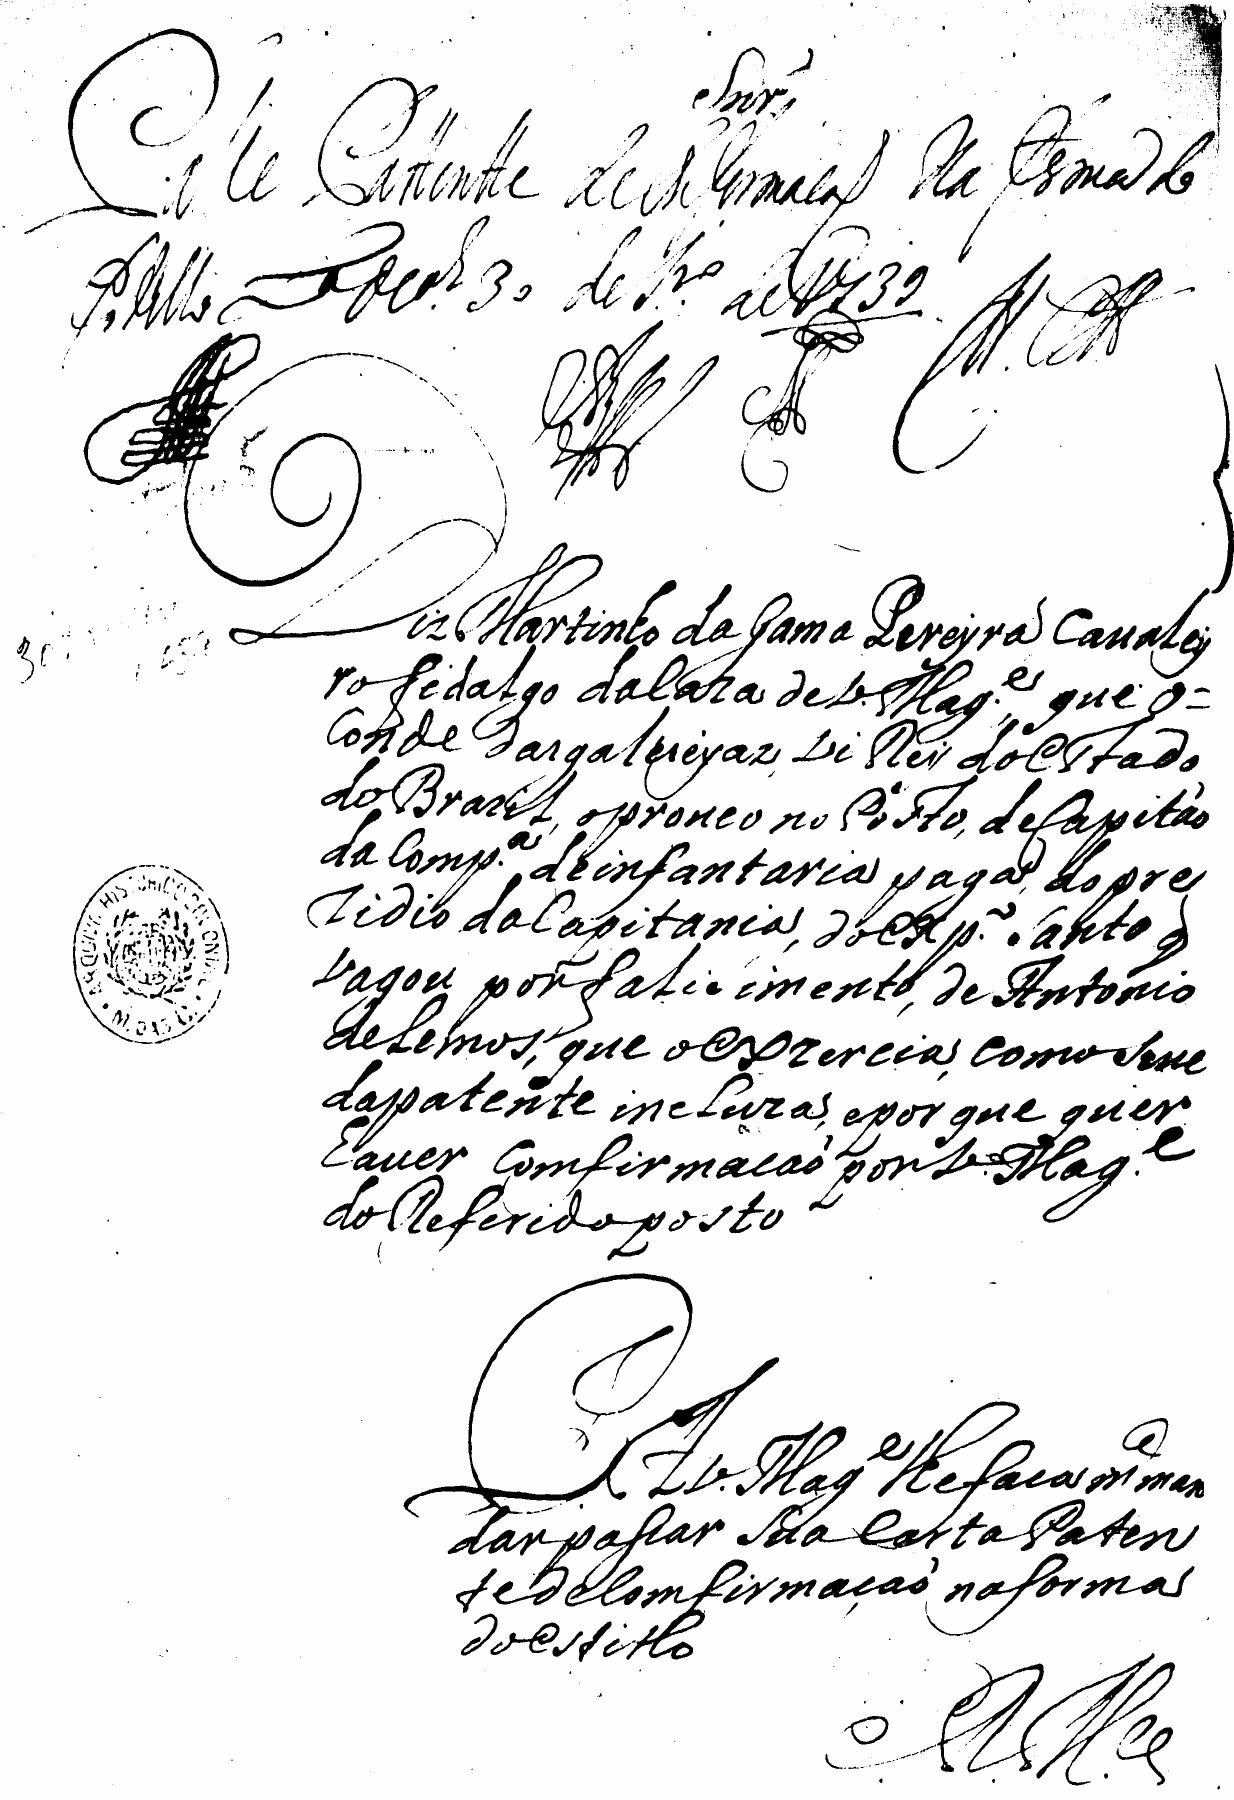 Snr̃
Passe Pattente de Confirmação Na forma do
Estillo Lx.ª occ.al 30 de Jan.ro de 1739
Diz Martinho da Gama Pereyra Caualey
ro fidalgo da Caza de V. Mag.e, que o=
Conde das galveyaz, Vi Rey do Estado
do Brazil, o proueo no Posto, de Capitão
da Comp.a de infantaria paga, do pre
zidio da Capitania, do Esp.to Santo q̃
Vagou por falicimento, de Antonio
de Lemos, que o exzercia, como Seve
da patente incluza, e por que quer
hauer Comfirmacaõ por V. Mag.e
do Referido posto
P. a V. Mag.e lhe faca m.ce man
dar passar Sua Carta Paten
te de Comfirmaçaõ na forma
do estillo
E. R. M.ce
ARQUIVO HISTORICO COLONIAL